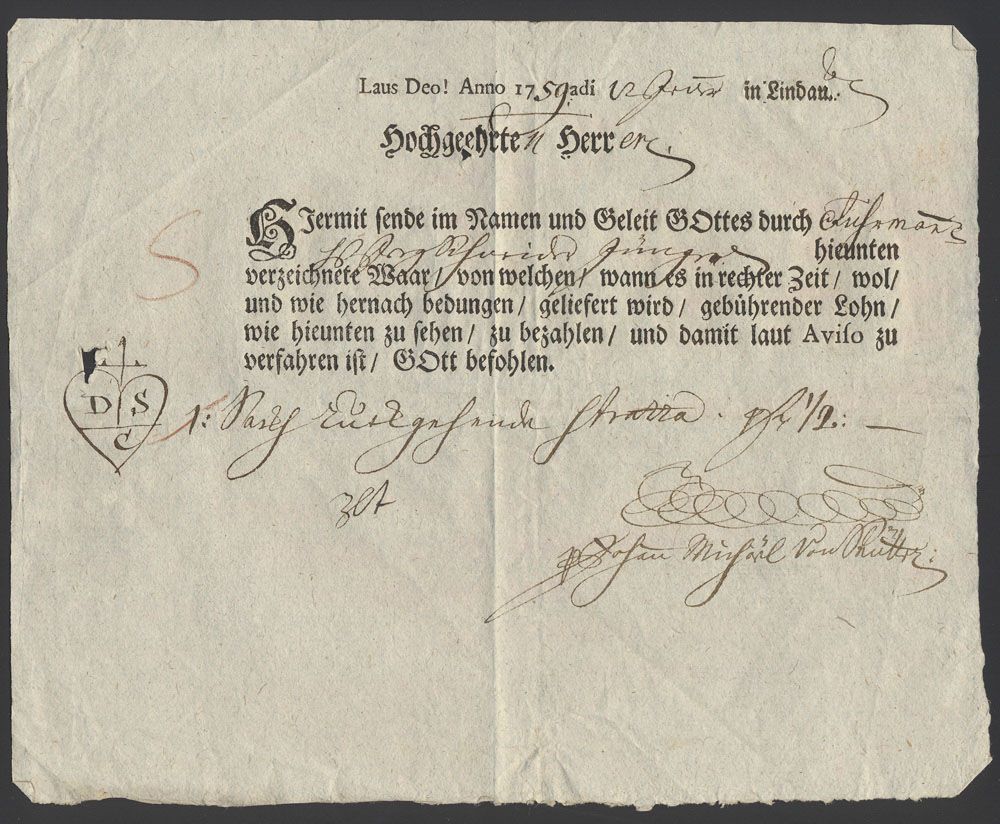 Laus Deo! Anno 1759 adi 12 Jenr in Lindau.
Hochgeehrten Herren.
HJermit sende im Namen und Geleit GOttes durch Fuhrman
Jünger hieunten
verzeichnete Waar/ von welchen/ wann es in rechter Zeit/ wol/
und wie hernach bedungen/ geliefert wird/ gebührender Lohn/
wie hieunten zu sehen/ zu bezahlen/ und damit laut Aviso zu
verfahren ist/ GOtt befohlen.
D S
C
1: Sack Ruckgehende Strazza. 1/2: —
Johan Michäel Von